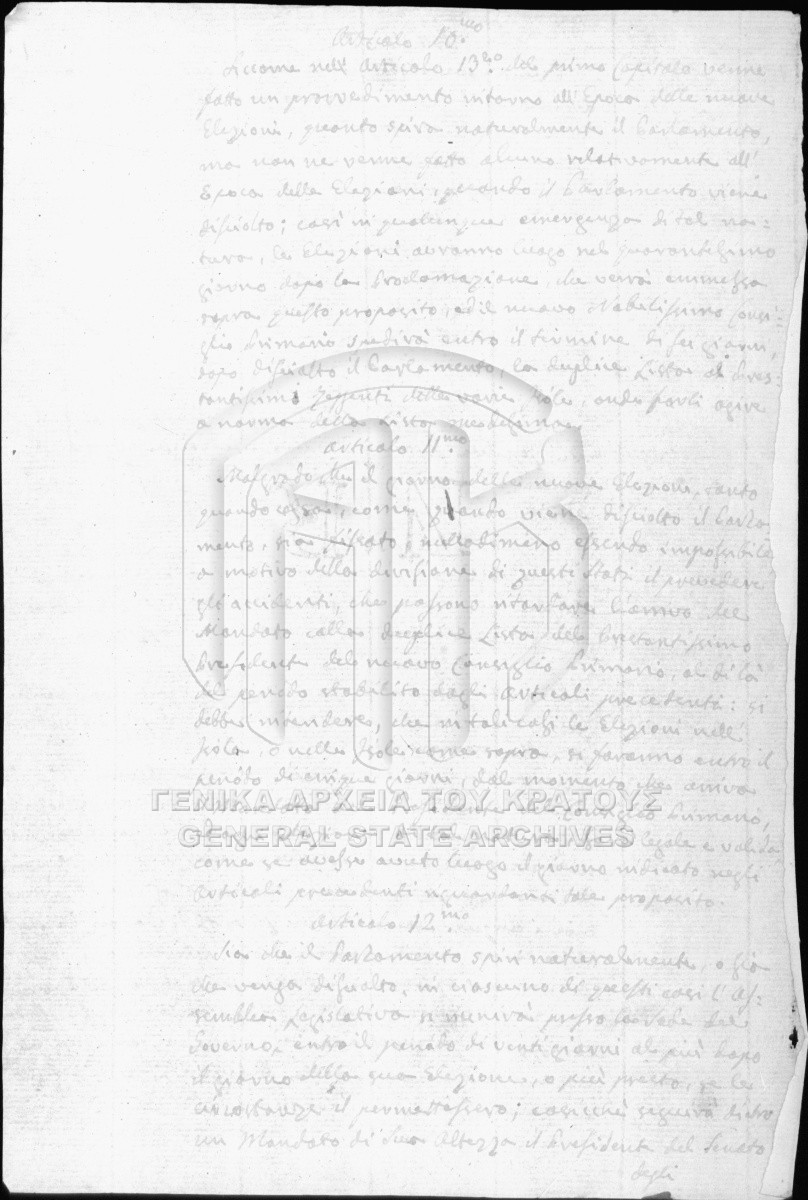 Articolo 10.mo
Siccome nell' Articolo 13.zo del primo Capitolo venne
fatto un provvedimento intorno all' Epoca delle nuove
Elezioni, quanto spira naturalmente il Parlamento,
ma non ne venne fatto alcuno relativamente all'
Epoca delle Elezioni, quando il Parlamento viene
disciolto; così in qualunque emergenza di tal na=
tura, le Elezioni avranno luogo nel quarantesimo
giorno dopo la Proclamazione, che verrà emmessa
sopra questo proposito, ed il nuovo Nobilissimo Consi=
glio Primario spedirà entro il termine di sei giorni,
dopo disciolto il Parlamento, la duplice Lista ai Pres=
tantissimi Reggenti delle varie Isole, onde farli agire
a norma della Lista medesima.
Articolo 11.mo
Malgrado che il giorno delle nuove Elezioni, tanto
quando cessa, come quando viene disciolto il Parla=
mento, sia fissato, nulladimeno essendo impossibile
a motivo della divisione di questi Stati il prevedere
gli accidenti, che possono ritardare l'arrivo del
Mandato colla duplice Lista del Prestantissimo
Presidente del nuovo Consiglio Primario, al di là
del periodo stabilito dagli Articoli precedenti: si
debba intendere, che in tali casi le Elezioni nell'
Isola, o nelle Isole come sopra, si faranno entro il
periodo di cinque giorni, dal momento che arriva
il Mandato del Presidente del Consiglio Primario,
legale e valida
come se avesse avuto luogo il giorno indicato negli
Articoli precedenti riguardanti tale proposito.
Articolo 12.mo
Sia che il Parlamento spiri naturalmente, o sia
che venga disciolto, in ciascuno di questi casi l' As=
semblea Legislativa si riunirà presso la Sede del
Governo, entro il periodo di venti giorni al più dopo
il giorno della sua Elezione, o più presto, se le
circostanze il permettessero; cosicché seguirà dietro
un Mandato di Sua Altezza il Presidente del Senato
degli
ΓΕΝΙΚΑ ΑΡΧΕΙΑ ΤΟΥ ΚΡΑΤΟΥΣ
GENERAL STATE ARCHIVES